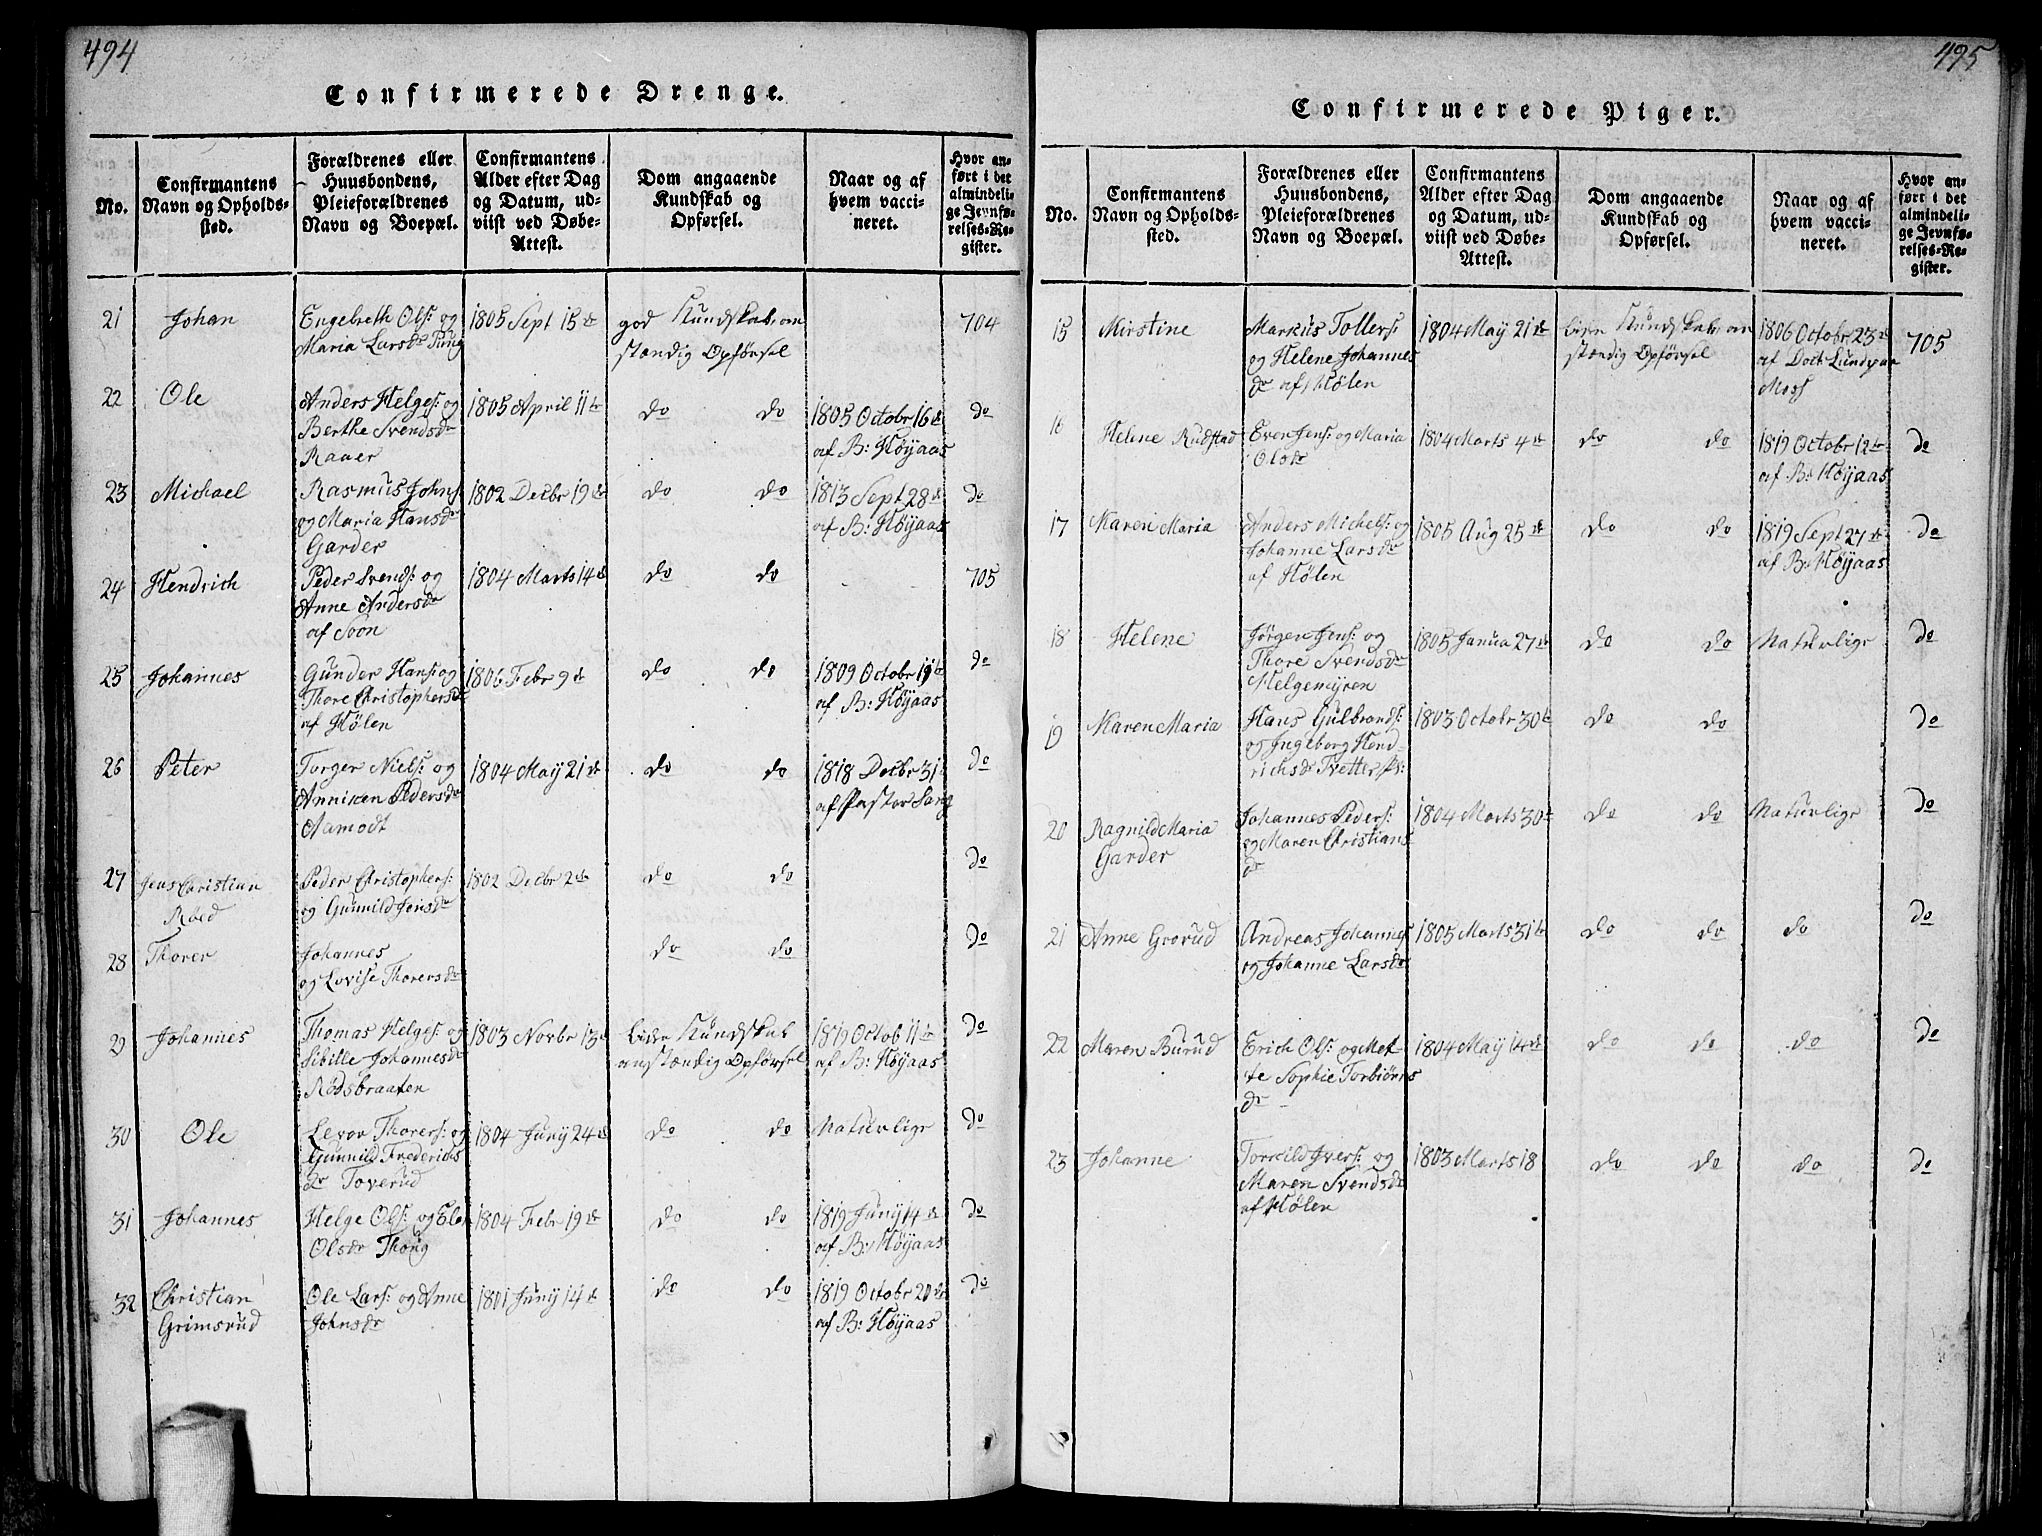 494
Confirmerede Drenge.
No.
Confirmantens
Navn og Opholds-
sted.
Forældrenes eller
Huusbondens,
Pleieforældrenes
Navn og Boepæl.
Confirmantens
Alder efter Dag
og Datum, ud-
viist ved Døbe-
Attest.
Dom angaaende
Kundskab og
Opførsel.
Naar og af
hvem vacci-
neret.
Hvor an-
ført i det
almindeli-
ge Jevnfø-
relses-Re-
gister.
21 Johan
Engebreth Ols: og
Maria Larsdr
1805 Sept 15de
god Kundskab, an
stændig Opførsel
704
22 Ole
Anders Helges: og
Berthe Svendsdr
Raaer
1805 April 11te
do do
1805 Octobr 16de
af B: Höyaas
do
23 Michael
Rasmus Johns:
og Maria Hansdr
Garder
1802 Decbr 19de
do do
1813 Sept 28de
af B: Höyaas
do
24 Hendrich
Peder Svends: og
Anne Andersdr
af Soon
1804 Marts 14de
do do
705
25 Johannes
Gunder Hans: og
Thore Christophersdr
af Hölen
1806 Febr 9de
do do
1809 Octobr 19de
af B: Höyaas
do
26 Peter
Torger Niels: og
Anniken Pedersdr
Aamodt
1804 May 21de
do do
1818 Decbr 31
af Pastor Lang
do
27 Jens Christian
Röed
Peder Christophers:
og Gunnild Jensdr
1802 Decbr 2de
do do
do
28 Thorer
Johannes
og Lovise Thorersdr
do do
do
29 Johannes
Thomas Helges: og
Sibille Johannesdr
Rödsbraaten
1803 Novbr 13de
liden Kundskab
anstændig Opförsel
1819 Octob 11te
af B: Höyaas
do
30 Ole
Levor Thorers: og
Gunnild Frederichs
dr Toverud
1804 Juny 24de
do do
Naturlige
do
31 Johannes
Helge Ols: og Elen
Olsdr Thoug
1804 Febr 19de
do do
1819 Juny 14de
af B: Höyaas
do
32 Christian
Grimsrud
Ole Lars: og Anne
Johnsdr
1801 Juny 14de
do do
1819 Octobr 20de
af B: Höyaas
do
495
Confirmerede Piger.
No.
Confirmantens
Navn og Opholds-
sted.
Forældrenes eller
Huusbondens,
Pleieforældrenes
Navn og Boepæl.
Confirmantens
Alder efter Dag
og Datum, ud-
viist ved Døbe-
Attest.
Dom angaaende
Kundskab og
Opførsel.
Naar og af
hvem vacci-
neret.
Hvor an-
ført i det
almindeli-
ge Jevnfø-
relses-Re-
gister.
15 Mirstine
Markus Tollers:
og Helene Johannes
dr af Hölen
1804 May 21de
liden Kundskab, an
stændig Opførsel
1806 Octobr 23de
af Doct: Lund paa
Moss
705
16 Helene Rudstad
Even Jens: og Maria
Olsdr
1804 Marts 4de
do do
1819 Octobr 12te
af B: Höyaas
do
17 Karen Maria
Anders Michels: og
Johanne Larsdr
af Hölen
1805 Aug 25de
do do
1819 Sept 27de
af B: Höyaas
do
18 Helene
Jörgen Jens: og
Thore Svendsdr
Helgemyren
1805 Janua 27de
do do
Naturlige
do
19 Karen Maria
Hans Gulbrands:
og Ingeborg Hend
richsdr Tvetter
1803 Octobr 30te
do do
do
20 Ragnild Maria
Garder
Johannes Peders:
og Maren Christians
dr
1804 Marts 30te
do do
Naturlige
do
21 Anne Grorud
Andreas Johannes
og Johanne Larsdr
1805 Marts 31te
do do
do
do
22 Maren Burud
Erich Ols: og Met
te Sophie Torbiörns
dr
1804 May 14de
do do
do
do
23 Johanne
Torkild Ivers: og
Maren Svendsdr
af Hölen
1803 Marts 18
do do
do
do